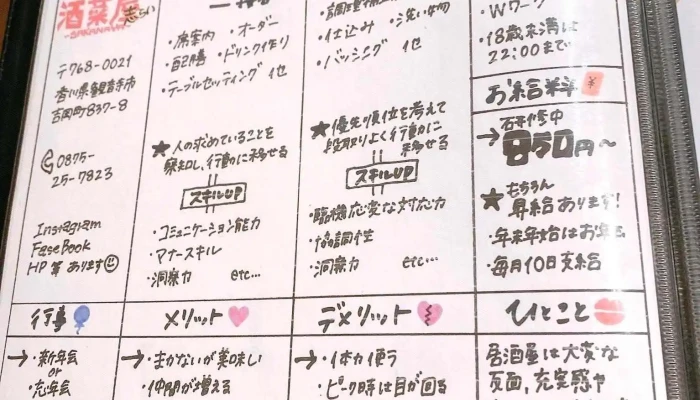 酒菜屋
-SAKANAYA-
志らい
〒768-0021
香川県観音寺市
吉岡町837-8
0875-
25-7823
Instagram
FaseBook
HP 等 あります
・席案内 ・オーダー
・配膳 ・ドリンク作り
・テーブルセッティング 他
★ 人の求めていることを
察知し、行動に移せる
スキルUP
・コミュニケーション能力
・マナースキル
・洞察力 etc…
・仕込み ・洗い物
・バッシング 他
★ 優先順位を考えて
段取りよく行動に
移せる
スキルUP
・臨機応変な対応力
・協調性
・洞察力 etc…
・Wワーク
・18歳未満は
22:00まで
お給料 ¥
研修中
→ 850円〜
★ もちろん
昇給あります!
・年末年始はお年玉
・毎月10日支給
行事
→・新年会
or
忘年会
メリット
→・まかないが美味しい
・仲間が増える
デメリット
→・体力使う
・ピーク時は目が回る
ひとこと
居酒屋は大変な
反面、充実感や